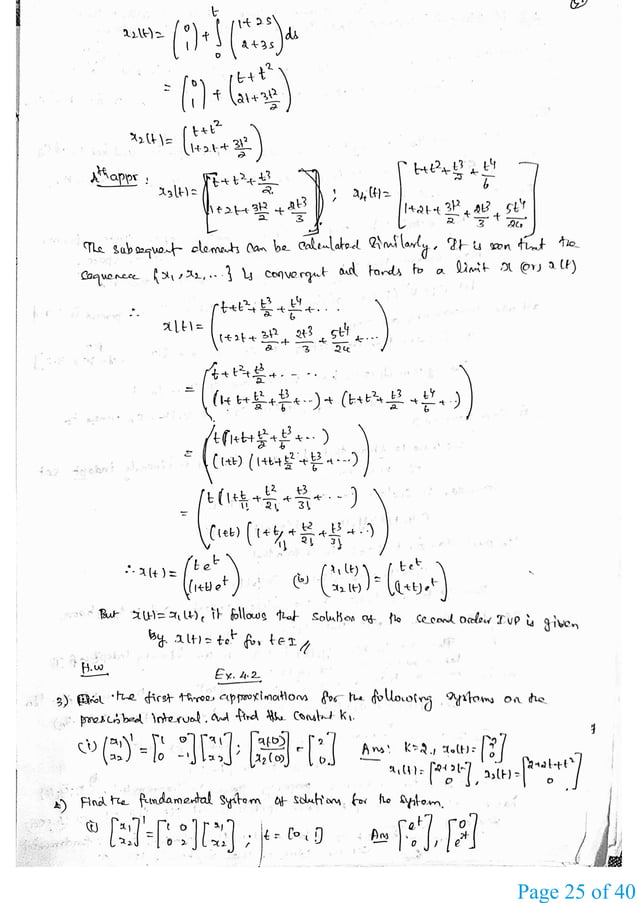 x₂(t) = (0 1) + ∫₀ᵗ (1+2s 2+3s) ds
= (0 1) + (t+t² 2t+3t²/2)
x₂(t) = (t+t² 1+2t+3t²/2)
4th appr : x₃(t) = [t+t²+t³/2 1+2t+3t²/2+2t³/3] ; x₄(t) = [t+t²+t³/2+t⁴/6 1+2t+3t²/2+2t³/3+5t⁴/24]
The subsequent elements can be calculated similarly. It is seen that the
sequence {x₁, x₂, ...} is convergent and tends to a limit x (or) x(t)
∴ x(t) = (t+t²+t³/2+t⁴/6+... 1+2t+3t²/2+2t³/3+5t⁴/24+...)
= (t+t²+t³/2+..... (1+t+t²/2+t³/6+..)+(t+t²+t³/2+t⁴/6+..))
= (t(1+t+t²/2+t³/6+..) (1+t)(1+t+t²/2+t³/6+...))
= (t(1+t/1!+t²/2!+t³/3!+...) (1+t)(1+t/1!+t²/2!+t³/3!+..))
∴ x(t) = (te^t (1+t)e^t) (ie) (x₁(t) x₂(t)) = (te^t (1+t)e^t)
But x(t)=x₁(t), it follows that solution of the second order IVP is given
by x(t)=te^t for t∈I //
H.W
Ex. 4.2
3) Find the first three approximations for the following systems on the
prescribed interval. and find the constnt K₁.
(i) (x₁ x₂)' = [1 0 0 -1] [x₁ x₂] ; [x₁(0) x₂(0)] = [2 0] Ans: K=2, x₀(t) = [2 0]
x₁(t) = [2+2t 0], x₂(t) = [2+2t+t² 0]
4) Find the fundamental system of solutions for the system.
(i) [x₁ x₂]' = [1 0 0 2] [x₁ x₂] ; t = [0, 1] Ans [e^t 0], [0 e^2t]
Page 25 of 40